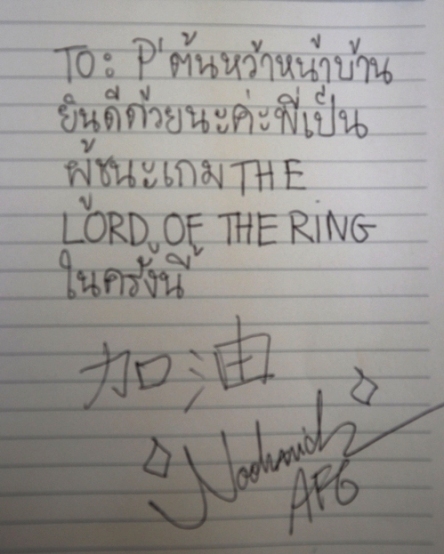 TO: P'ต้นหว้าหน้าบ้าน
ยินดีด้วยนะค่ะพี่เป็น
ผู้ชนะเกม THE
LORD OF THE RING
ในครั้งนี้
加油